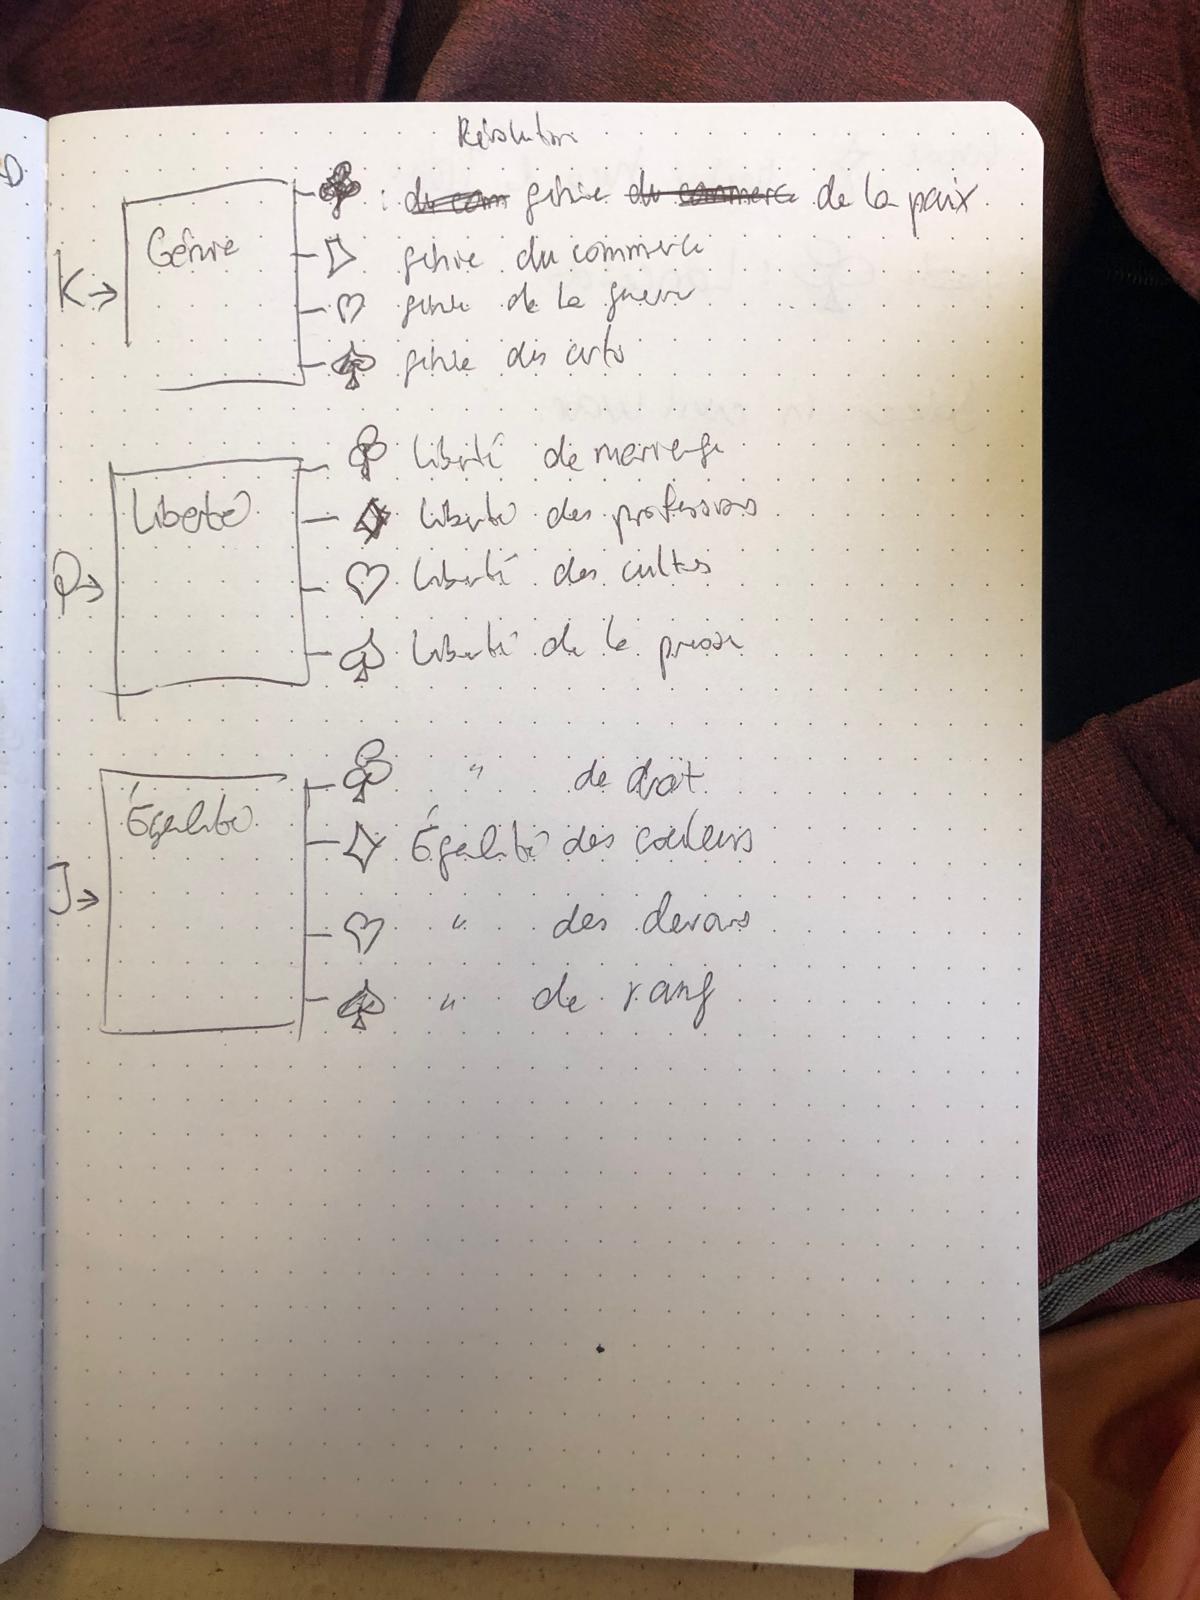 Révolution
K → Génie
♣ : du com génie du commerce de la paix
♢ génie du commerce
♡ génie de la guerre
♠ génie des arts
Q → Liberté
♣ liberté de marriage
♢ liberté des professions
♡ liberté des cultes
♠ liberté de la presse
J → Égalité
♣ " de droit
♢ Égalité des couleurs
♡ " des devoirs
♠ " de rang